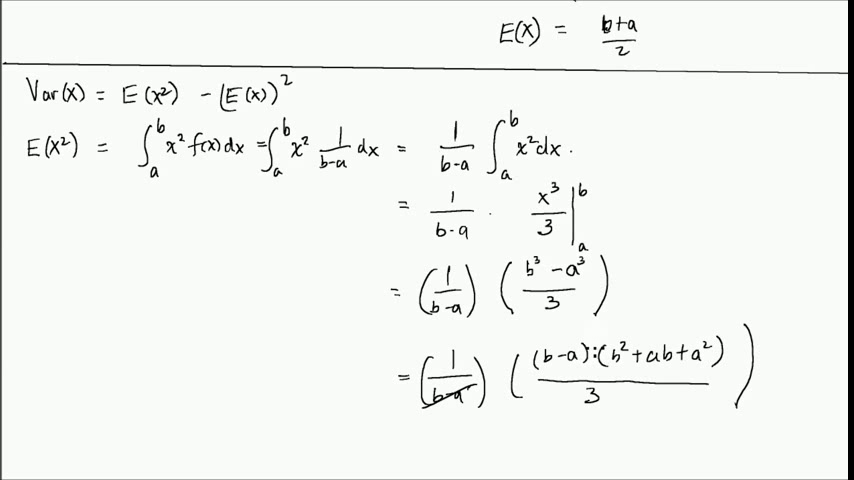 E(X) = b+a/2
Var(x) = E(x²) - (E(x))²
E(X²) = ∫ₐᵇ x² f(x) dx = ∫ₐᵇ x² 1/(b-a) dx = 1/(b-a) ∫ₐᵇ x² dx.
= 1/(b-a) · x³/3 |ₐᵇ
= (1/(b-a)) ((b³ - a³)/3)
= (1/(b-a)) ((b-a):(b²+ab+a²)/3)